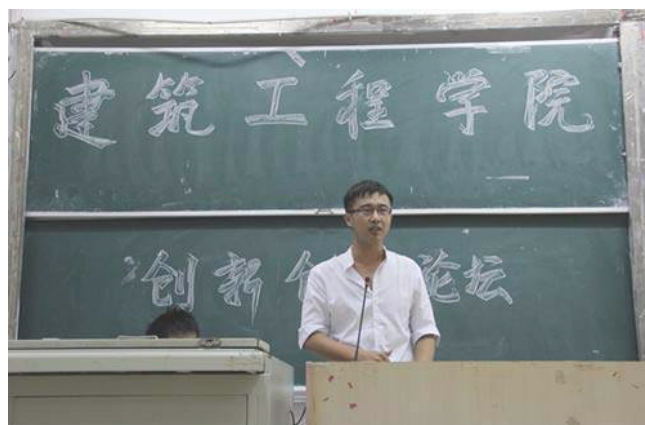 建筑工程学院
创新创论坛